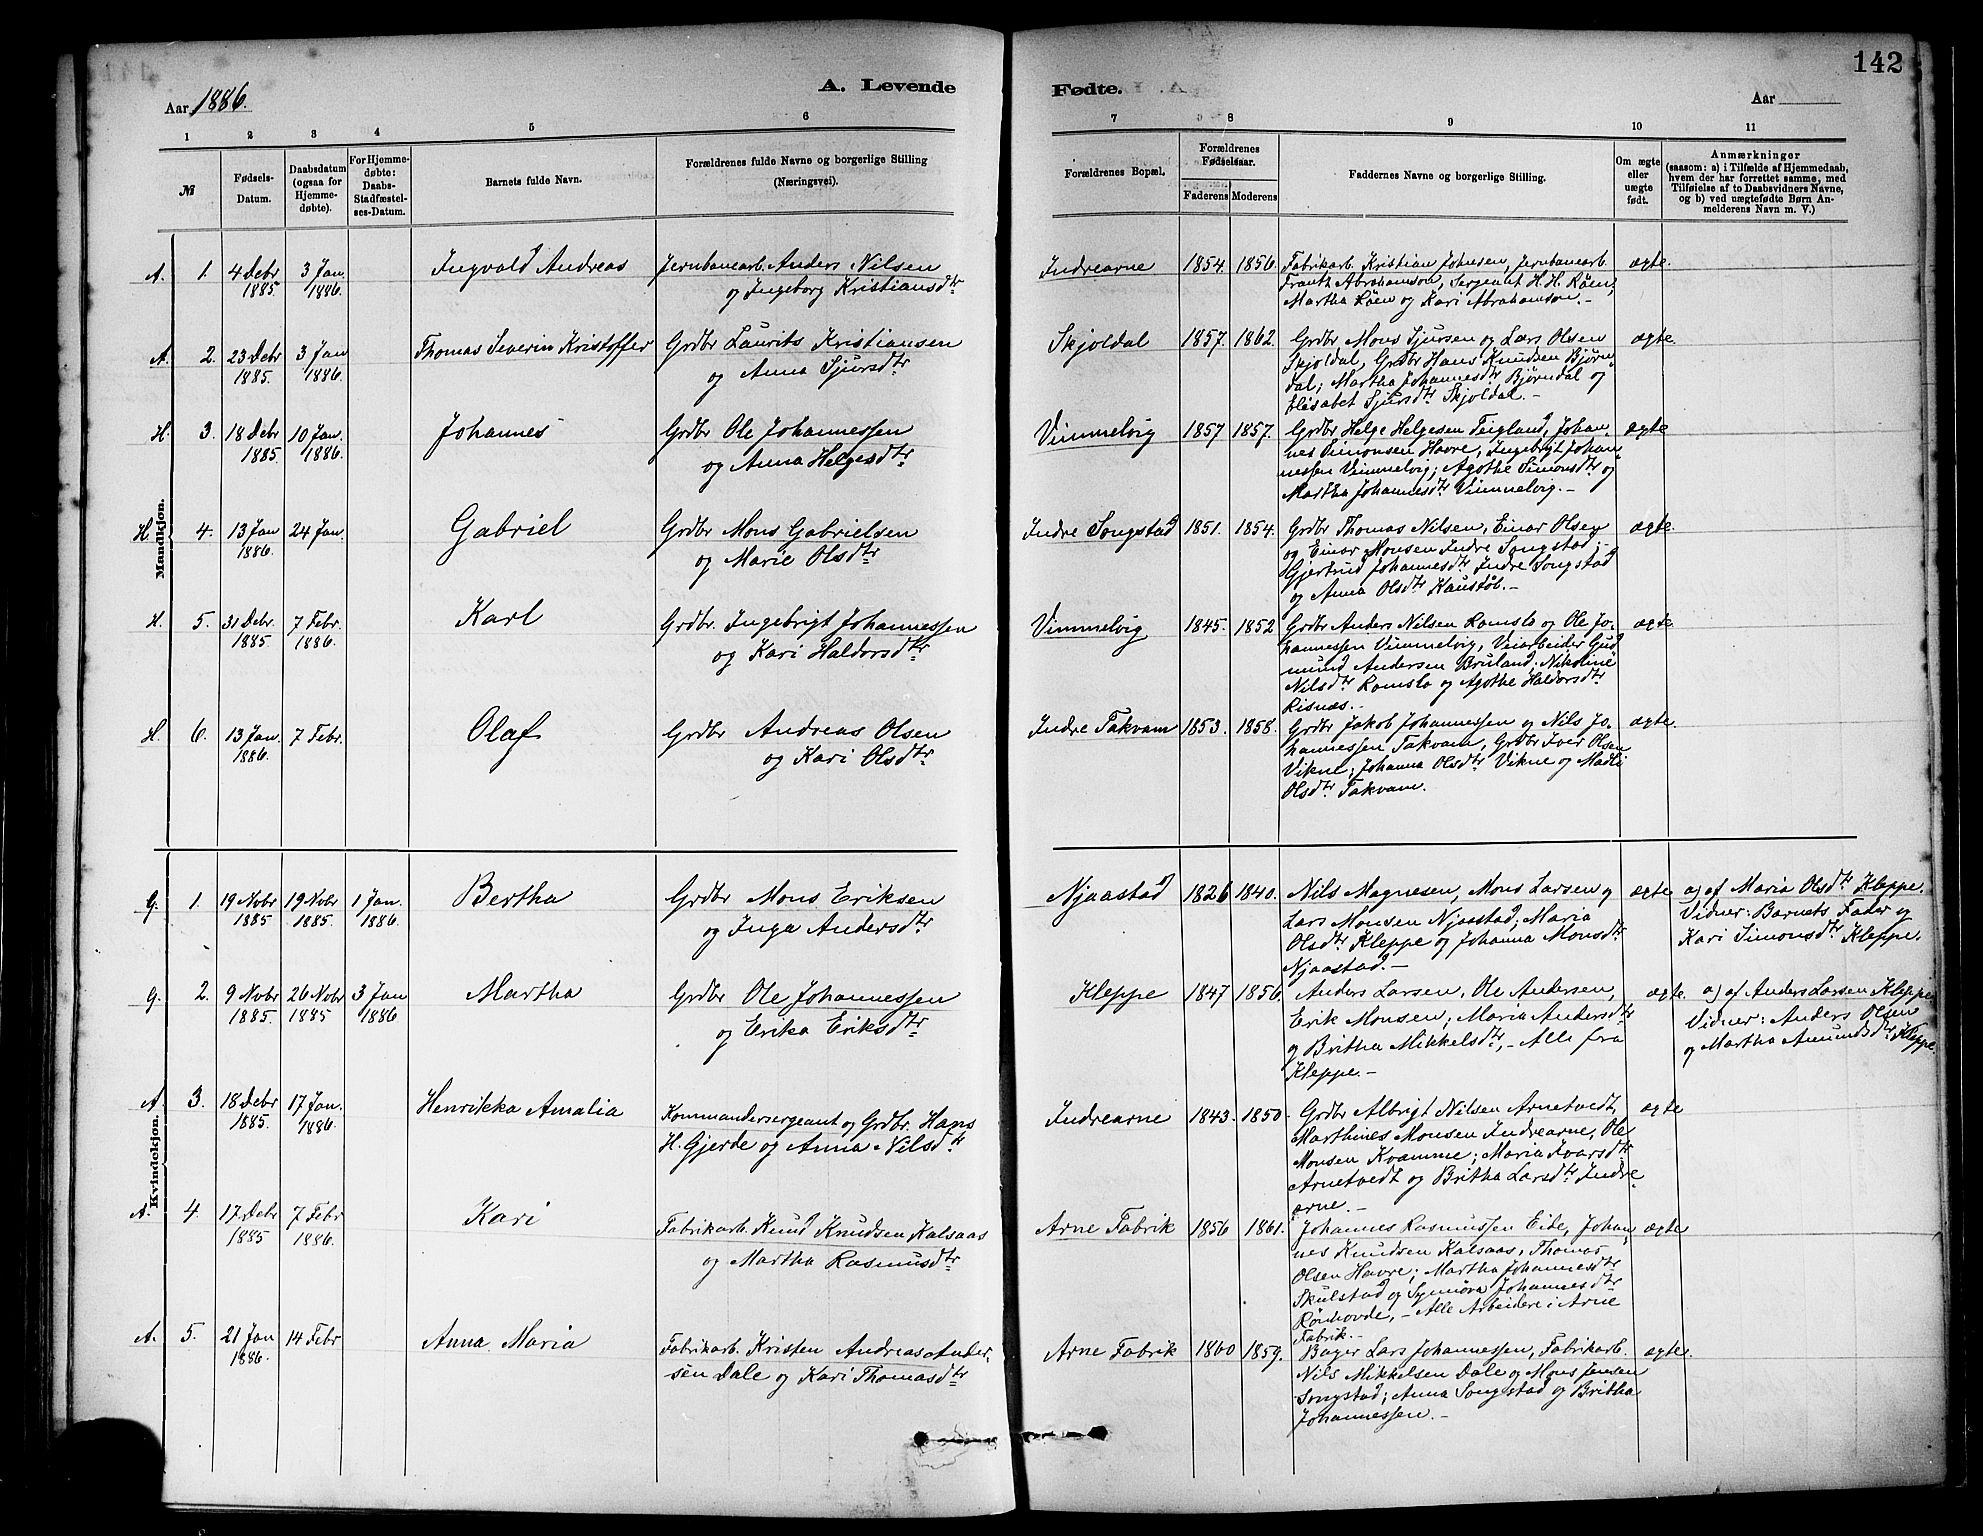 142
Aar 1886.
A. Levende
Fødte.
Aar
1 2 3 4 5 6 7 8 9 10 11
№
Fødsels-
Datum.
Daabsdatum
(ogsaa for
Hjemme-
døbte).
For Hjemme-
døbte:
Daabs-
Stadfæstel-
ses-Datum.
Barnets fulde Navn.
Forældrenes fulde Navne og borgerlige Stilling
(Næringsvei).
Forældrenes Bopæl.
Forældrenes
Fødselsaar.
Faderens Moderens
Faddernes Navne og borgerlige Stilling.
Om ægte
eller
uægte
født.
Anmærkninger
(saasom: a) i Tilfælde af Hjemmedaab,
hvem der har forrettet samme, med
Tilføielse af to Daabsvidners Navne,
og b) ved uægtefødte Børn An-
melderens Navn m. V.)
Mandkjøn.
A. 1. 4 Debr 1885. 3 Jan. 1886. Ingvald Andreas
Jernbanearb. Anders Nilsen
og Ingeborg Kristiansdtr
Indrearne 1854. 1856.
Fabrikarb. Kristian Johnsen, Jernbanearb.
Frants Abrahamson, Sergeant H. H. Røen;
Martha Røen og Kari Abrahamson.-
ægte.
A. 2. 23 Debr 1885. 3 Jan 1886. Thomas Severin Kristoffer
Grdbr Laurits Kristiansen
og Anna Sjursdtr
Skjoldal 1857. 1862.
Grdbr Mons Sjursen og Lars Olsen
Skjoldal, Grdbr Hans Knudsen Bjørn-
dal; Martha Johannesdtr Bjørndal og
Elisabet Sjursdtr Skjoldal.-
ægte
H. 3. 18 Debr 1885. 10 Jan. 1886. Johannes
Grdbr Ole Johannessen
og Anna Helgesdtr
Vimmelvig 1857 1857.
Grdbr Helge Helgesen Teigland, Johan-
nes Simonsen Havre, Ingebrigt Johan-
nessen Vimmelvig; Agothe Simonsdtr og
Martha Johannesdtr Vimmelvig.-
ægte
H. 4. 13 Jan 1886. 24 Jan. Gabriel
Grdbr Mons Gabrielsen
og Marie Olsdtr
Indre Songstad 1851. 1854.
Grdbr Thomas Nilsen, Einar Olsen
og Einar Monsen Indre Songstad;-
Gjertrud Johannesdtr Indre Songstad
og Anna Olsdtr Haustøb.-
ægte
H. 5. 31 Debr. 1885. 7 Febr. 1886. Karl
Grdbr. Ingebrigt Johannessen
og Kari Haldorsdtr
Vimmelvig 1845. 1852
Grdbr Anders Nilsen Romslo og Ole Jo-
hannessen Vimmelvig, Veiarbeider Gud
mund Andersen Bruland; Nikoline
Nilsdtr Romslo og Agothe Haldorsdtr
Risnæs.-
ægte.
H. 6. 13 Jan. 1886. 7 Febr. Olaf
Grdbr Andreas Olsen
og Kari Olsdtr
Indre Takvam 1853. 1858.
Grdbr Jakob Johannessen og Nils Jo-
hannessen Takvam, Grdbr Iver Olsen
Vikne; Johanna Olsdtr Vikne og Madli
Olsdtr Takvam.
ægte.
Kvindekjøn.
G. 1. 19 Novbr 1885 19 Novbr 1885. 1 Jan. 1886. Bertha
Grdbr Mons Eriksen
og Inga Andersdtr
Njaastad 1826 1840.
Nils Magnesen, Mons Larsen og
Lars Monsen Njaastad; Maria
Olsdtr Kleppe og Johanna Monsdtr
Njaastad.-
ægte
a) af Maria Olsdtr Kleppe.
Vidner: Barnets Fader og
Kari Simonsdtr Kleppe.
G. 2. 9 Novbr 1885. 26 Novbr 1885 3 Jan 1886 Martha
Grdbr Ole Johannessen
og Erika Eriksdtr
Kleppe 1847 1856.
Anders Larsen, Ole Andersen,
Erik Monsen; Maria Andersdtr
og Britha Mikkelsdtr,- Alle fra
Kleppe.-
ægte.
a) af Anders Larsen Kleppe
Vidner: Anders Olsen
og Martha Amundsdtr Kleppe.
A. 3. 18 Debr 1885. 17 Jan. 1886. Henrikka Amalia
Kommandersergeant og Grdbr. Hans
H. Gjerde og Anna Nilsdtr
Indrearne 1843. 1850.
Grdbr Albrigt Nilsen Arnetvedt,
Marthines Monsen Indrearne, Ole
Monsen Kvamme; Maria Ivarsdtr
Arnetvedt og Britha Larsdtr Indre
arne.-
ægte
A. 4. 17 Debr 1885 7 Febr 1886. Kari
Fabrikarb. Knud Knudsen Kalsaas
og Martha Rasmusdtr
Arne Fabrik 1856 1861.
Johannes Rasmussen Eide, Johan-
nes Knudsen Kalsaas, Thomas
Olsen Havre; Martha Johannesdtr
Skulstad og Synnøva Johannesdtr
Rønhovde,- Alle Arbeidere i Arne
Fabrik.-
ægte
A. 5. 21 Jan 1886. 14 Febr Anna Maria
Fabrikarb. Kristen Andreas Ander-
sen Dale og Kari Thomasdtr
Arne Fabrik 1860 1859.
Bager Lars Johannessen, Fabrikarb.
Nils Mikkelsen Dale og Mons Jensen
Songstad; Anna Songstad og Britha
Johannessen.-
ægte.